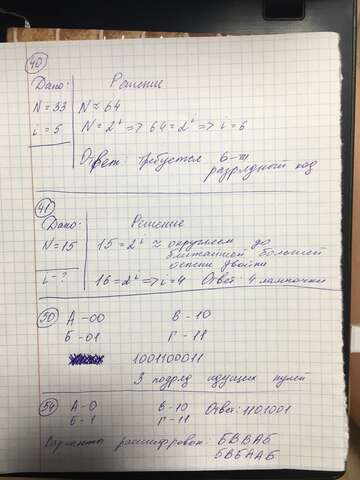 40
Дано:
Решение
N = 33
N ≈ 64
i = 5
N = 2ⁱ => 64 = 2ⁱ => i = 6
Ответ: требуется 6-ти
разрядный код
41
Дано:
Решение
N = 15
15 = 2ⁱ ≈ округляем до
ближайшей большей
степени двойки
i = ?
16 = 2ⁱ => i = 4 Ответ: 4 лампочки
50
А - 00 В - 10
Б - 01 Г - 11
1001100011
3 подряд идущих нулей
54
А - 0 В - 10 Ответ: 1101001
Б - 1 Г - 11
Варианты расшифровок БВВАБ
БВБААБ